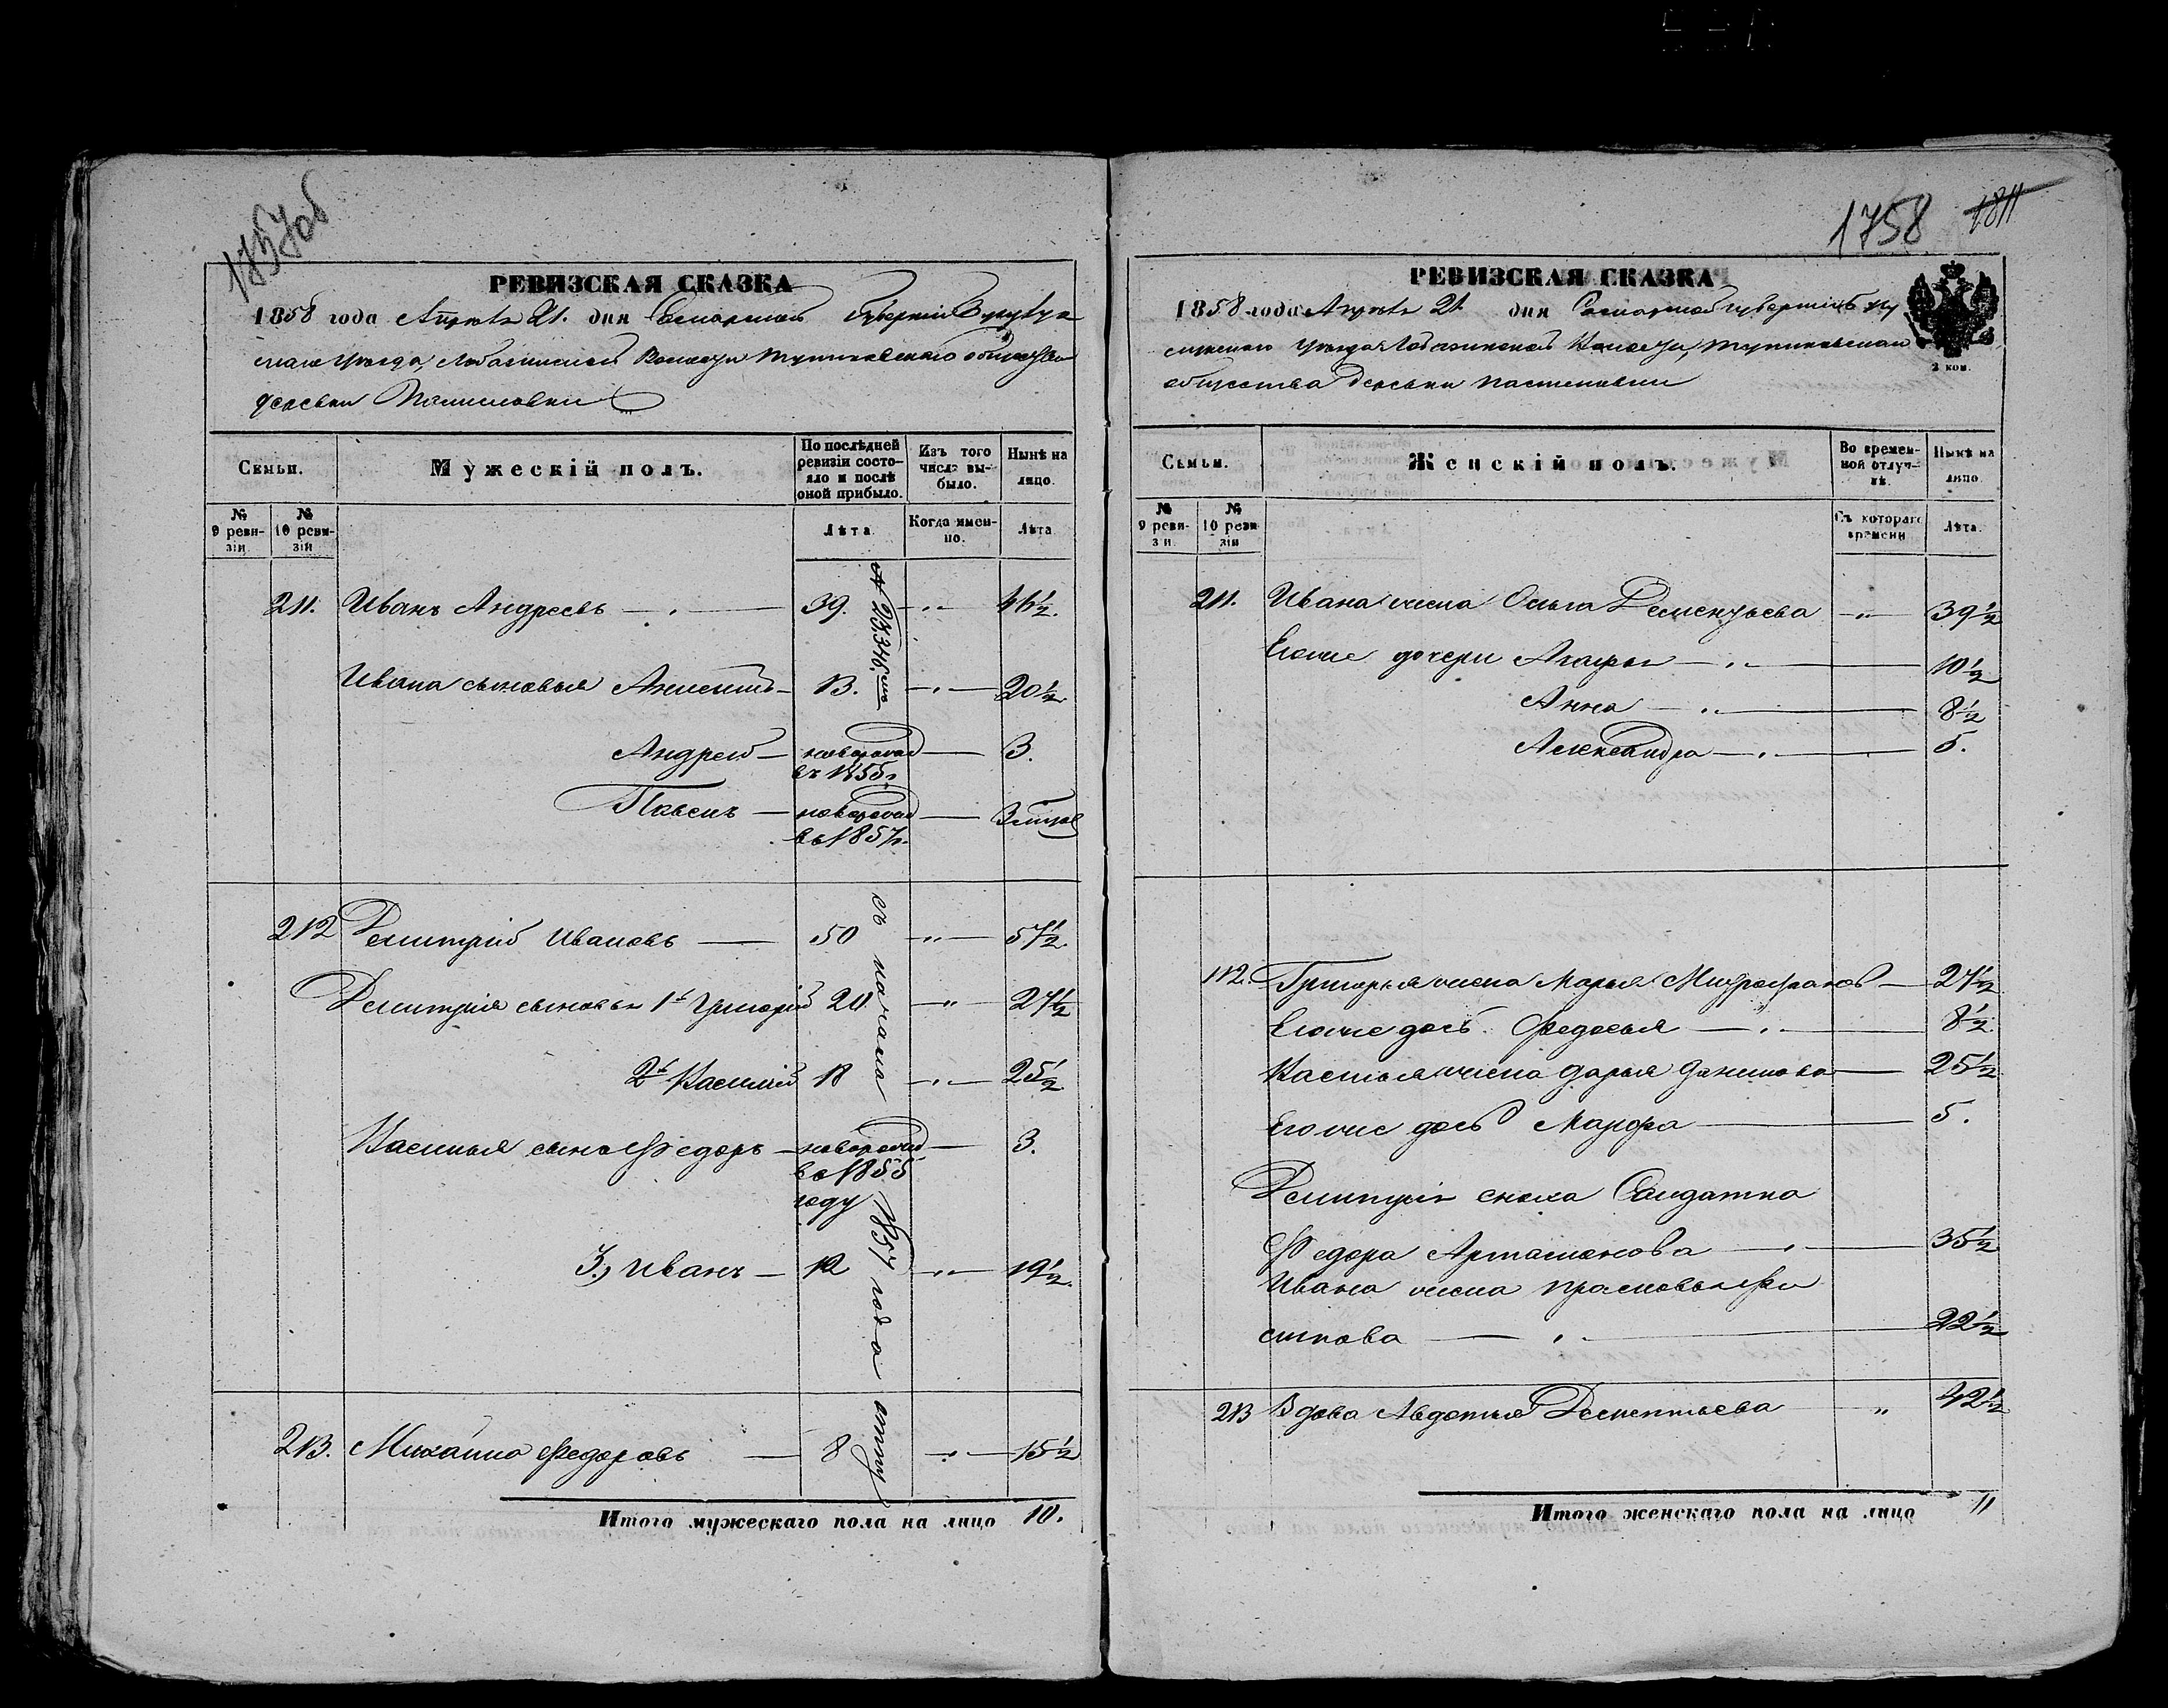 1757об
РЕВИЗСКАЯ СКАЗКА
1858 года Апреля 21. дня Самарской Губернии Бузулук-
скаго уезда, волости общества
деревни
Семьи.
Мужескій полъ.
По послѣдней ревизіи состо-яло и послѣ оной прибыло.
Изъ того числа вы-было.
Нынѣ на лицо.
№ 9 реви-зіи.
№ 10 реви-зіи
Лѣта.
Когда имен-но.
Лѣта
211. Иванъ Андреевъ — 39. — „ — 46½.
Ивана сыновья — 13. — „ — 20½
Андрей — новорожд — 3.
въ 1855г.
Павелъ — новорожд —
въ 1857г.
212 Демитрий Ивановъ — 50 — „ — 57½.
Демитрия сыновья 1й Григорий 20 — „ — 27½
2й Василий 18 — „ — 25½
Василья сынъ Федоръ — новорожд — 3.
въ 1855
году
3.) Иванъ — 12 — „ — 19½.
213. Михайло Федоровъ — 8 — „ — 15½
съ начала 1857 года
Итого мужескаго пола на лицо 10.
1758 1811
РЕВИЗСКАЯ СКАЗКА
1858 года Апреля 21 дня Самарской губернии Бузу
лукскаго уезда волости,
общества деревни
2 коп.
Семьи.
Женскій полъ.
Во времен-ной отлуч-кѣ.
Нынѣ на лицо.
№ 9 реви-зіи.
№ 10 реви-зіи
Съ котораго времени
Лѣта.
211. Ивана жена Ольга Дементьева — „ — 39½
Егоже дочери — „ — 10½
Анна — „ — 8½
Александра — „ — 5.
212. Григорья жена Марья Митрофанов — 27½
Егоже дочь Федосья — „ — 8½
Василья жена Дарья Данилова — 25½
Егоже дочь Марфа — 5.
Демитрия сноха Салдатка
Федора Артамонова — „ — 35½
Ивана жена Прасковья Фи
липова — „ — 22½
213 Вдова Авдотья Дементьева — „ 42½
Итого женскаго пола на лицо 11